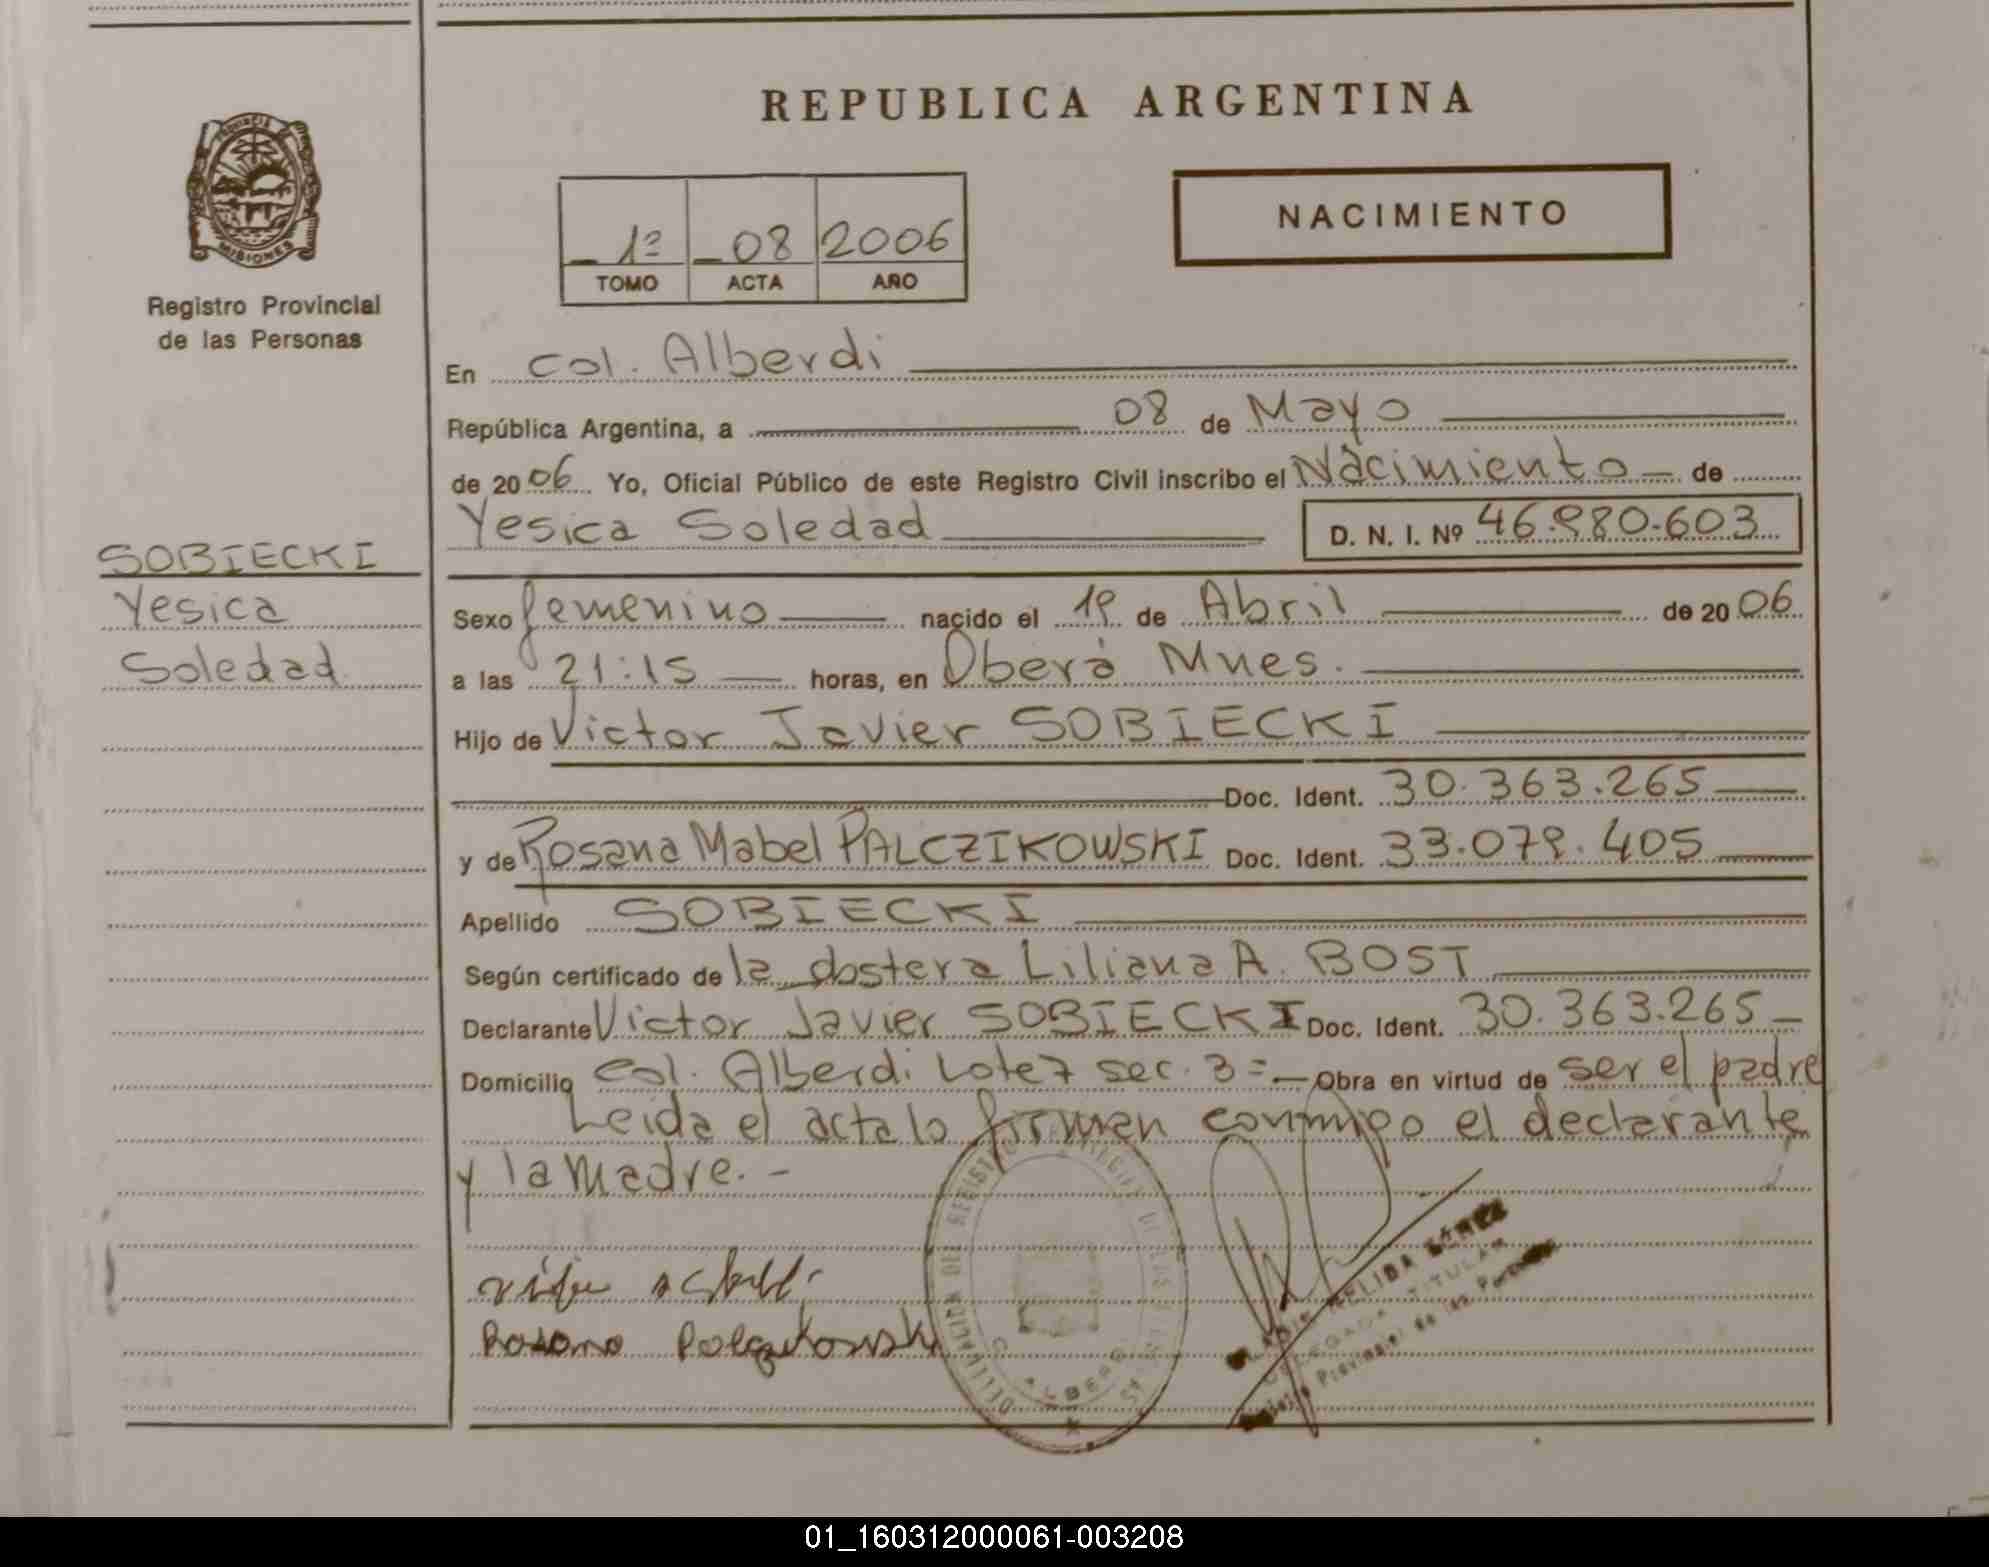 REPUBLICA ARGENTINA
PROVINCIA DE
MISIONES
Registro Provincial
de las Personas
1º 08 2006
TOMO ACTA AÑO
NACIMIENTO
En Col. Alberdi
República Argentina, a 08 de Mayo
de 2006 Yo, Oficial Público de este Registro Civil inscribo el Nacimiento de
Yesica Soledad D. N. I. Nº 46.980.603
SOBIECKI
Yesica
Soledad
Sexo femenino nacido el 19 de Abril de 2006
a las 21:15 horas, en Oberá Mnes.
Hijo de Victor Javier SOBIECKI
Doc. Ident. 30.363.265
y de Rosana Mabel PALCZIKOWSKI Doc. Ident. 33.079.405
Apellido SOBIECKI
Según certificado de la obstera Liliana A. BOST
Declarante Victor Javier SOBIECKI Doc. Ident. 30.363.265
Domicilio Col. Alberdi Lote 7 sec. 3= Obra en virtud de ser el padre
Leida el acta lo firman conmigo el declarante
y la madre.-
Rosana
NELIDA
DELEGADA TITULAR
Provincial de las Personas
01_160312000061-003208